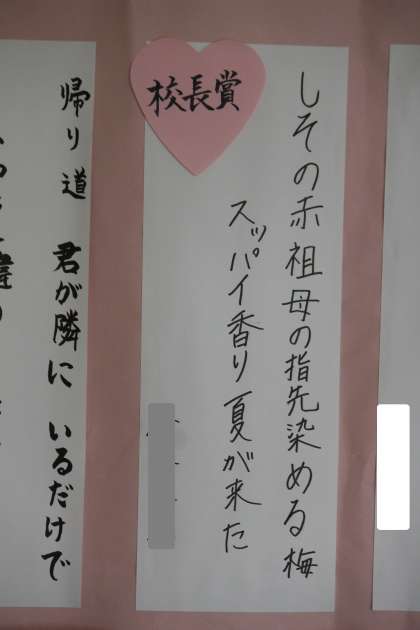 校長賞
しその赤祖母の指先染める梅
スッパイ香り夏が来た
帰り道 君が隣に いるだけで